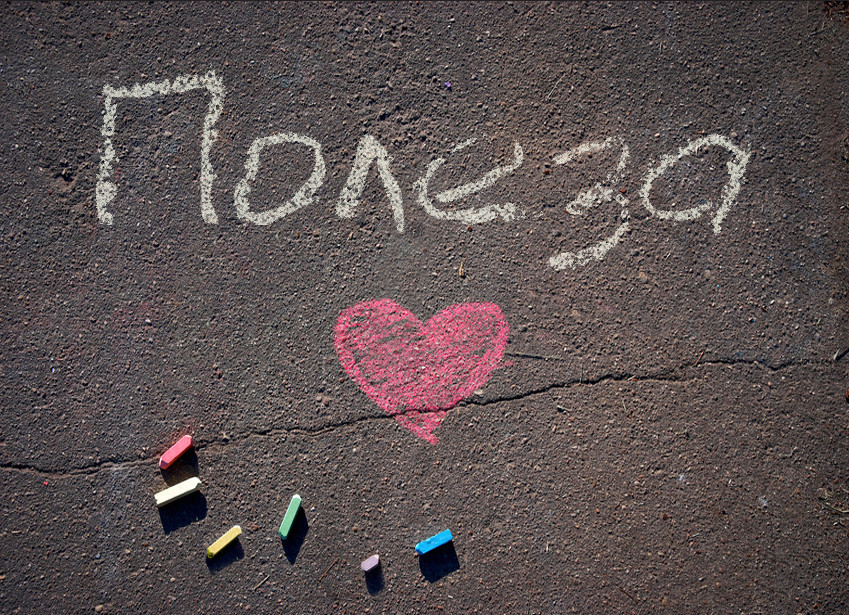 Полеза